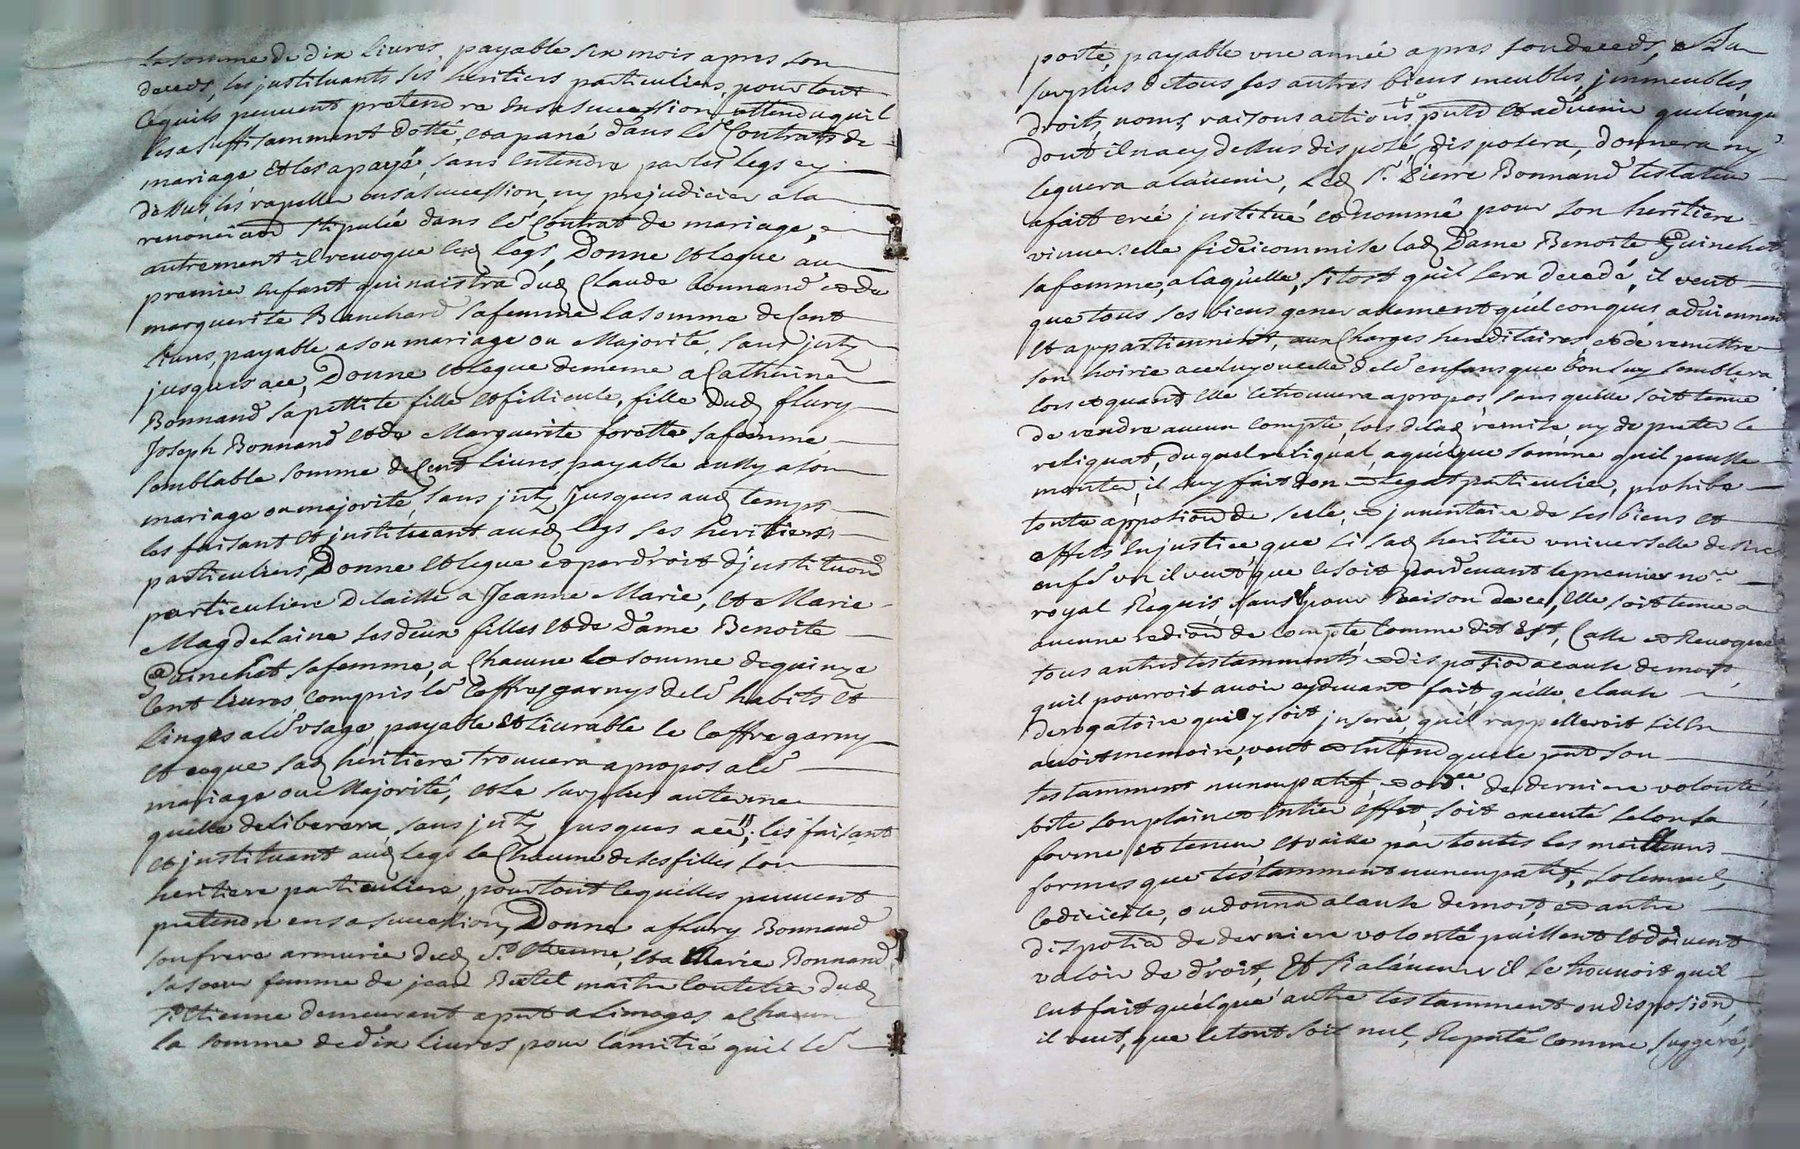 la somme de dix livres, payable six mois apres son
deceds, les justituants ses heritiers particuliers, pour tout
ce quils peuvent pretendre en sa succession, attendu quil
les a suffisamment dotté, et apané dans led Contrats de
mariage et les a payé, sans entendre par les legs cy
dessus, les rapeller en sa succession, ny prejudicier a la
renonciaõn stipulée dans led Contrat de mariage,
autrement il revoque lesd legs, Donne et legue au
premier enfant qui naistra dud Claude bonnand et de
marguerite Blanchard sa femme la somme de Cent
livres, payable a son mariage ou Majorité, sans jnts
jusques a ce, Donne et legue de meme a Catherine
Bonnand sa petite fille et fillieule, fille dud flury
Joseph Bonnand et de Marguerite forette sa femme,
semblable somme de Cent livres payable aussy a son
mariage ou majorité, sans jnts jusques aud temps
les faisant et justituant aud legs ses heritiers
particuliers, Donne et legue et par droit d'justituõn
particuliere delaisse a Jeanne Marie, et Marie
Magdelaine ses deux filles et de Dame Benoite
Guinchet sa femme, a Chacune la somme de quinze
Cent livres, compris le Coffres garnys de le habits et
linges a le usage payable et livrable le Coffre garny
et ce que sad heritiere trouvera a propos a le
mariage ou Majorité, et le surplus au terme
quelle deliberera, sans jnts jusques a ce; les faisant
et justituant aud legs le Chacune de ses filles son
heritiere particuliere, pour tout ce quelles peuvent
pretendre en sa succession, Donne a flury Bonnand
son frere armurie dud St Etienne, et a Marie Bonnand
sa soeur femme de jean maitre Coutelier dud
St Etienne demeurant a pnt a Limoges a Chacun
la somme de dix livres pour l'amitié quil le
porte, payable une année apres son deceds, Au
surplus de tous ses autres biens meubles, jmmeubles,
droits, noms, raisons actions pnts et advenir quelconque
dont il n'a cy dessus disposé, disposera, donnera ny
leguera a l'avenir, Led Sr. Pierre Bonnand testateur
a fait creé justitué et nommé pour son heritiere
universelle fideicommise lad Dame Benoite Guinchet
sa femme, a laquelle, sitost quil sera decedé, il veut
que tous ses biens generallement quelconques adviennent
et appartiennent, aux Charges hereditaires et de remettre
son hoirie a celuy ou celle de le enfans que bon luy semblera
lors et quant elle le trouvera apropos, sans quelle soit tenue
de rendre aucun compte, lors de lad remise ny de preter le
reliquat, duquel reliquat, a quelque somme quil puisse
monter, il luy fait don et legat particulier, prohibe
toute appositiõn de scele, et jnventaire de ses biens et
effets en justice que si sad heritiere universelle desire
en f un il veut que ce soit pardevant le premier nore
royal Requis, sans pour Raison de ce, Elle soit tenue a
aucune rediõn de compte Comme dit est, Casse et Revoque
tous autres testamments et disposiõn a cause de mort,
quil pourroit avoir cydevant fait quelle clause
derogatoire qui y soit jnserée, quil rappelleroit sil en
avoit memoire, veut et entend que le pnt son
testamment nuncupatif, et ordce. de derniere volonté
sorte son plain et entier effet, soit executé selon sa
forme et teneur, et vaille par toutes les meilleures
formes que testamment nuncupatif, solemnel,
Codicile, ou donnaõn a cause de mort, et autre
dispotiõn de derniere volonté puissent et doivent
valoir de droit, Et si a l'avenir il se trouvoit quil
eut fait quelque autre testamment ou disposiõn,
il veut, que le tout soit nul, Reputé comme suggeré,